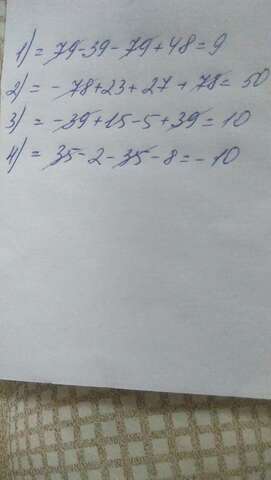 1) = 79-39-79+48=9
2) = -78+23+27+78=50
3) = -39+15-5+39=10
4) = 35-2-35-8=-10